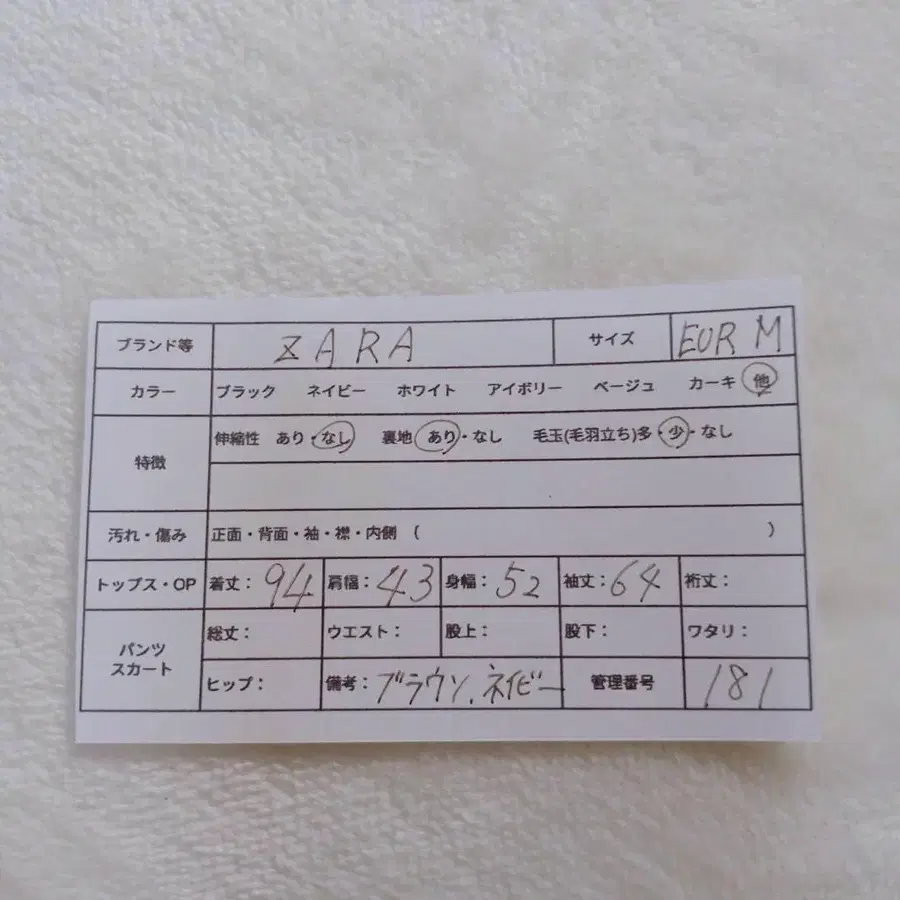 ブランド等 ZARA サイズ EUR M
カラー ブラック ネイビー ホワイト アイボリー ベージュ カーキ 他
特徴 伸縮性 あり・なし 裏地 あり・なし 毛玉(毛羽立ち)多・少・なし
汚れ・傷み 正面・背面・袖・襟・内側 ( )
トップス・OP 着丈：94 肩幅：43 身幅：52 袖丈：64 裄丈：
パンツ スカート 総丈： ウエスト： 股上： 股下： ワタリ：
ヒップ： 備考：ブラウン、ネイビー 管理番号 181